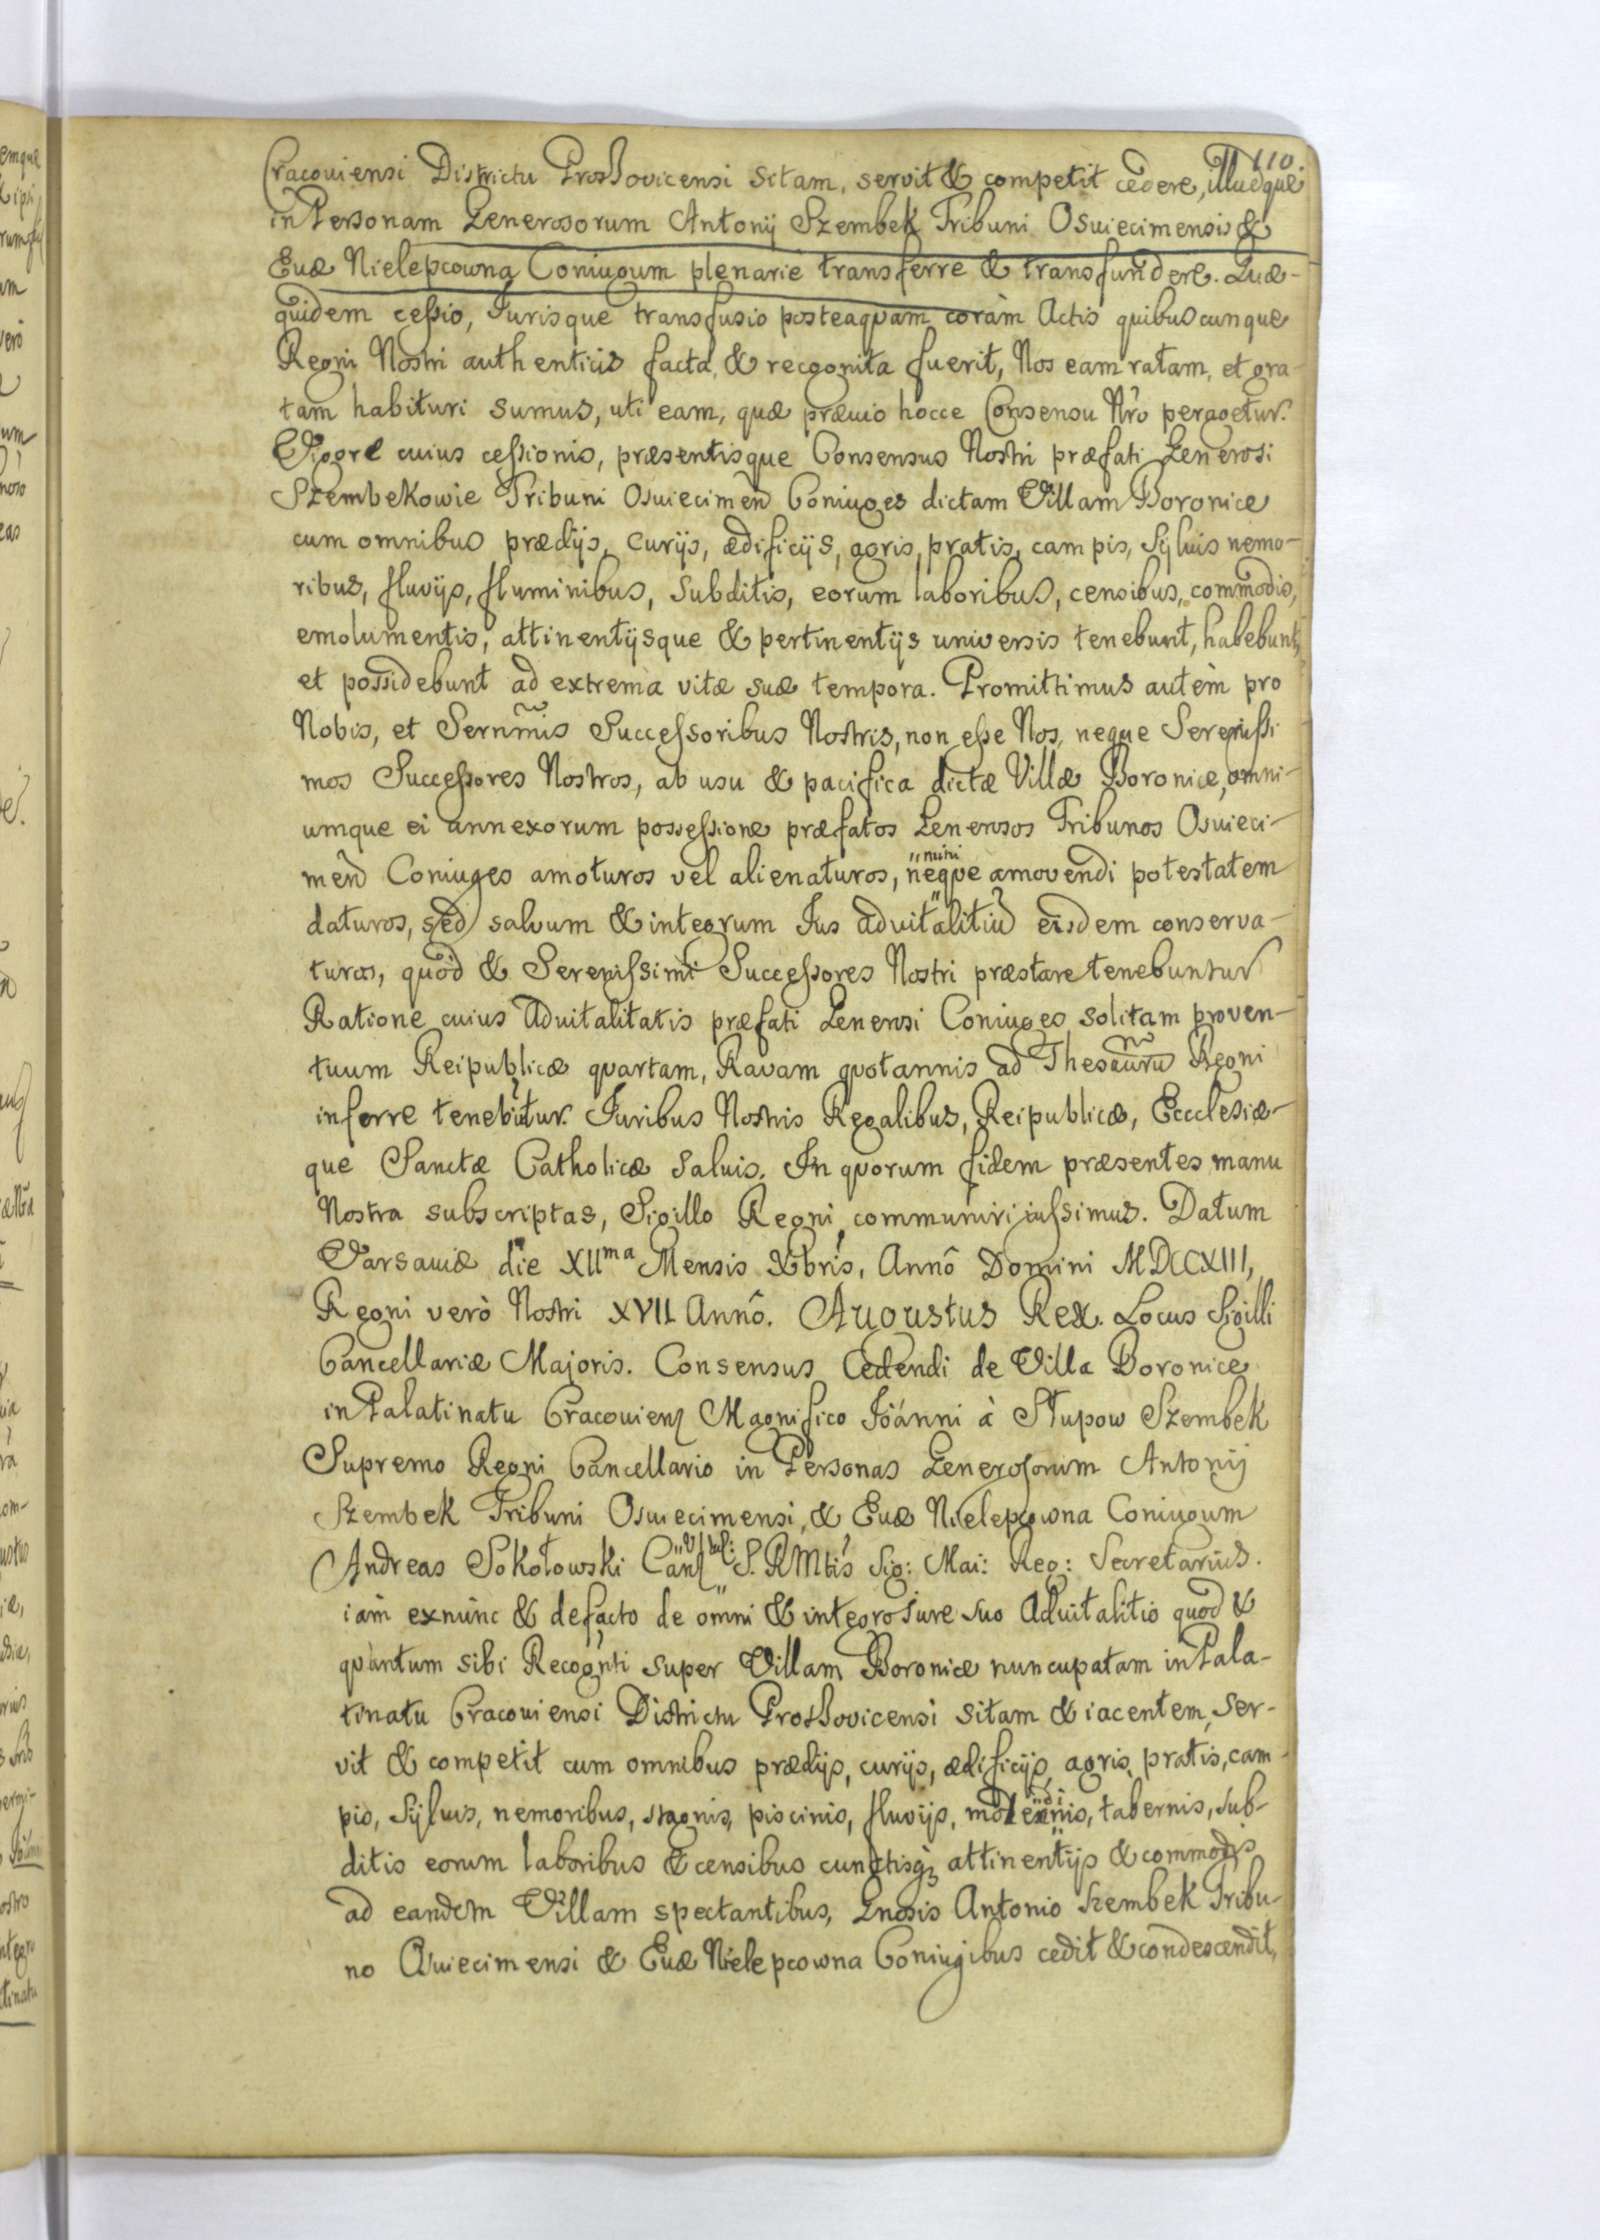 110.
Cracouiensi Districtu Prosſovicensi sitam, servit & competit cedere, illudque
in Personam Generosorum Antonij Szembek Tribuni Osuiecimensis &
Euæ Nielepcowna Coniugum plenarie transferre & transfundere. Quæ-
quidem ceſsio, Iurisque transfusio posteaquam coràm Actis quibuscunque
Regni Nostri authenticis facta, & recognita fuerit, Nos eam ratam, et gra-
tam habituri sumus, uti eam, quæ præuio hocce Consensu Nr̃o peragetur.
Vigore cuius ceſsionis, præsentisque Consensus Nostri præfati Generosi
Szembekowie Tribuni Osuiecimen̄ Coniuges dictam Villam Boronice
cum omnibus prædijs, curijs, ædificijs, agris, pratis, campis, Syluis nemo-
ribus, fluvijs, fluminibus, subditis, eorum laboribus, censibus, commodis,
emolumentis, attinentijsque & pertinentijs universis tenebunt, habebunt,
et possidebunt ad extrema vitæ suæ tempora. Promittimus autèm pro
Nobis, et Sernm̃is Succeſsoribus Nostris, non eſse Nos, neque Sereniſsi
mos Succeſsores Nostros, ab usu & pacifica dictæ Villæ Boronice, omni-
umque ei annexorum posseſsione præfatos Generosos Tribunos Osuieci-
men̄ Coniuges amoturos vel alienaturos, neque "mini amovendi potestatem
daturos, sed salvum & integrum Ius advitalitiũ eisdem conserva-
turos, quòd & Sereniſsimi Succeſsores Nostri præstare tenebuntur
Ratione cuius Aduitalitatis præfati Generosi Coniuges solitam proven-
tuum Reipublicæ quartam, Ravam quotannis ad Thesaurũ Regni
inferre tenebũtur. Iuribus Nostris Regalibus, Reipublicæ, Eccclesiæ-
que Sanctæ Catholicæ saluis. In quorum fidem præsentes manu
Nostra subscriptas, Sigillo Regni communiri iuſsimus. Datum
Varsauiæ die XIIma Mensis Xbris, Annô Domini MDCCXIII,
Regni verò Nostri XVII Annô. Augustus Rex. Locus Sigilli
Cancellariæ Majoris. Consensus Cedendi de Villa Boronice
in Palatinatu Cracouien̄ Magnifico Ioánni à Słupow Szembek
Supremo Regni Cancellario in Personas Generosorum Antonij
Szembek Tribuni Osuiecimensi, & Euæ Nielepcowna Coniugum
Andreas Sokołowski S. RMtis Sig: Mai: Reg: Secretarius.
iàm exnùnc & defacto de omni & integro iure suo Aduitalitio quod &
quantum sibi Recogñti super Villam Boronice nuncupatam in Pala-
tinatu Cracouiensi Districtu Prosſovicensi sitam & iacentem, ser-
vit & competit cum omnibus prædijs, curijs, ædificijs, agris, pratis, cam-
pis, Syluis, nemoribus, stagnis, piscinis, fluvijs, molendinis, tabernis, sub-
ditis eorum laboribus & censibus cunctisq attinentijs & commodis
ad eandem Villam spectantibus, Gnosis Antonio Szembek Tribu-
no Osuiecimensi & Euæ Nielepcowna Coniugibus cedit & condescendit,